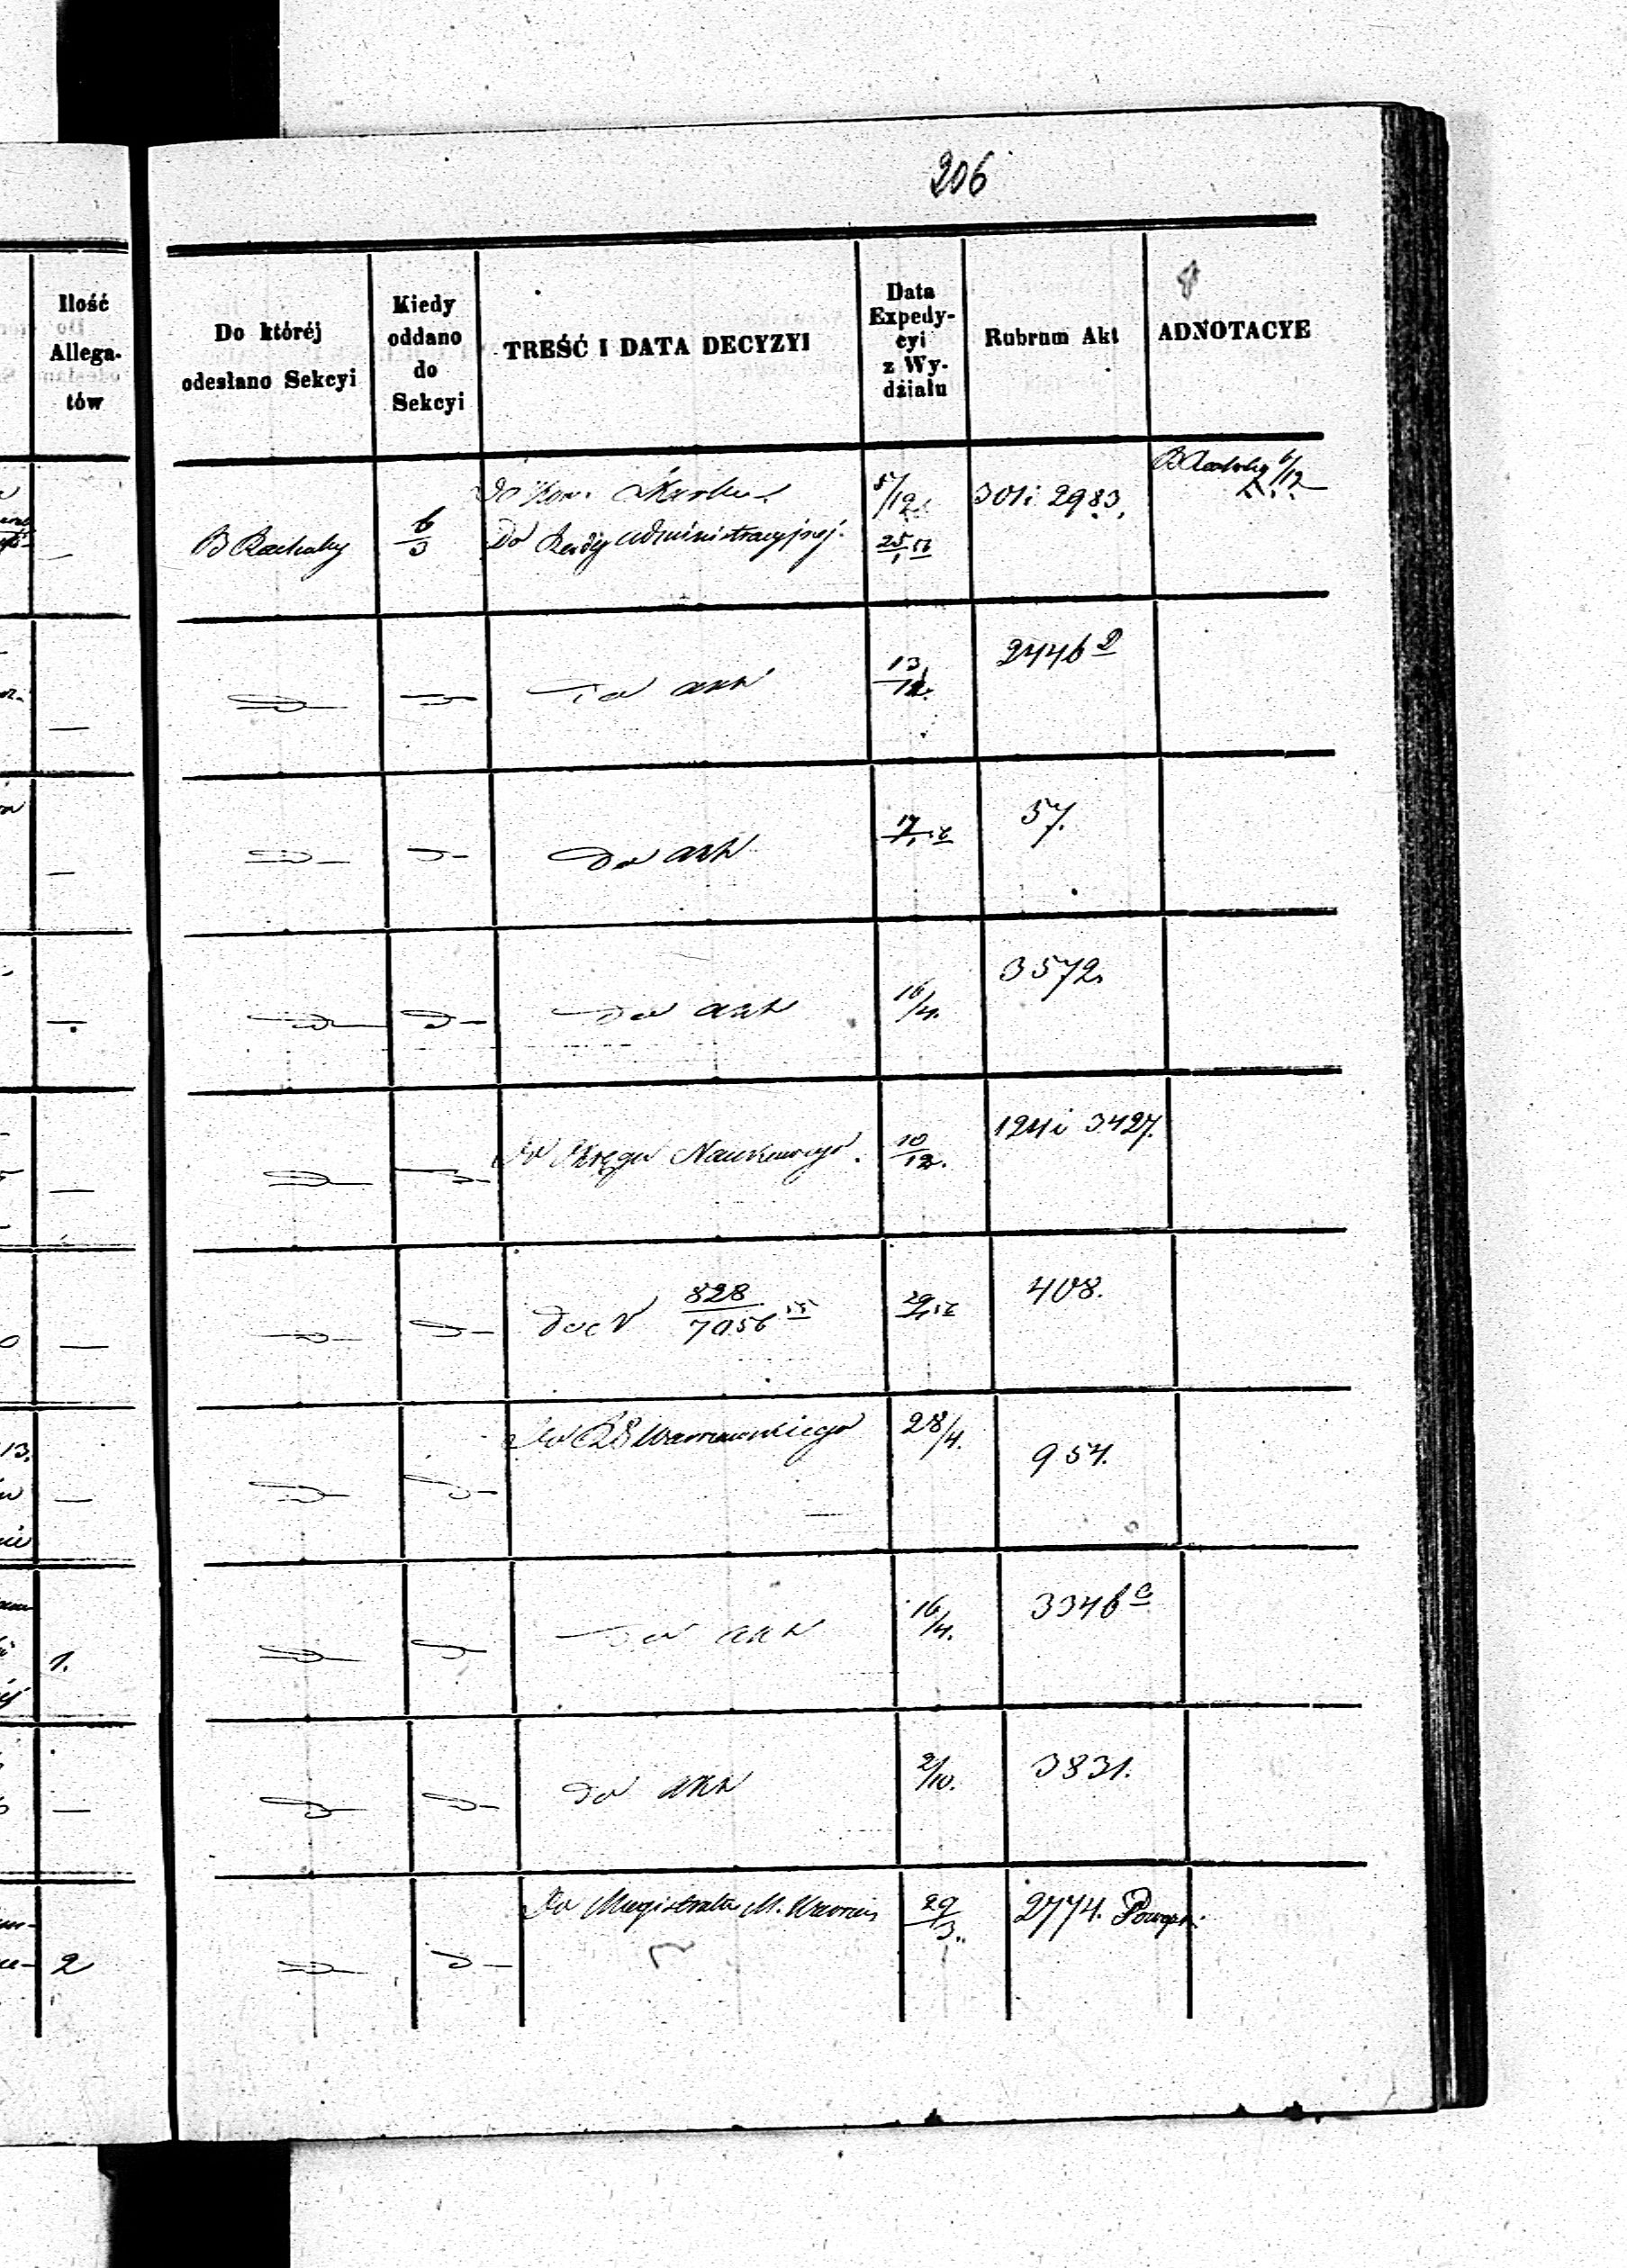 206
Ilość
Allega-
tów
Do któréj
odesłano Sekcyi
Kiedy
oddano
do
Sekcyi
TREŚĆ I DATA DECYZYI
Data
Expedy-
cyi
z Wy-
działu
Rubrum Akt
ADNOTACYE
6/12
5/12
301 i 2983.
B 6/3 Do Rady Administracyjnej. 25/1 56
Do akt 13/12. 2446 D
Do akt 17/1 56 57.
Do akt 16/4. 3572.
Do Okręgu Naukowego. 10/12. 124 i 3427.
Do N 828/7056 55 29/1 56 408.
Do Warszawskiego 28/4. 954.
1. Do akt 16/4. 3346 c
Do akt 2/10. 3831.
Do Magistratu M. Warszawy 29/3. 2774.
2